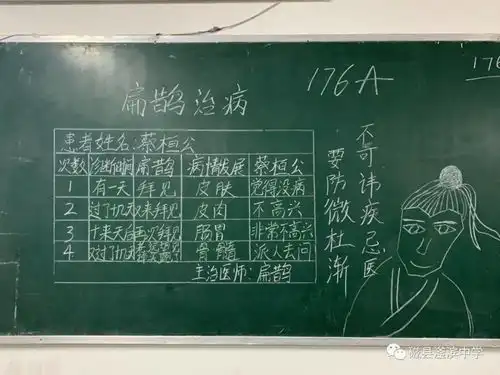 176A
176
扁鹊治病
患者姓名:蔡桓公
次数 诊断时间 扁鹊 病情发展 蔡桓公
1 有一天 拜见 皮肤 觉得没病
2 过了十几天 又来拜见 皮肉 不高兴
3 十来天后 再次拜见 肠胃 非常不高兴
4 又过了十几天 骨髓 派人去问
主治医师:扁鹊
不可讳疾忌医
要防微杜渐
磁县滏滨中学